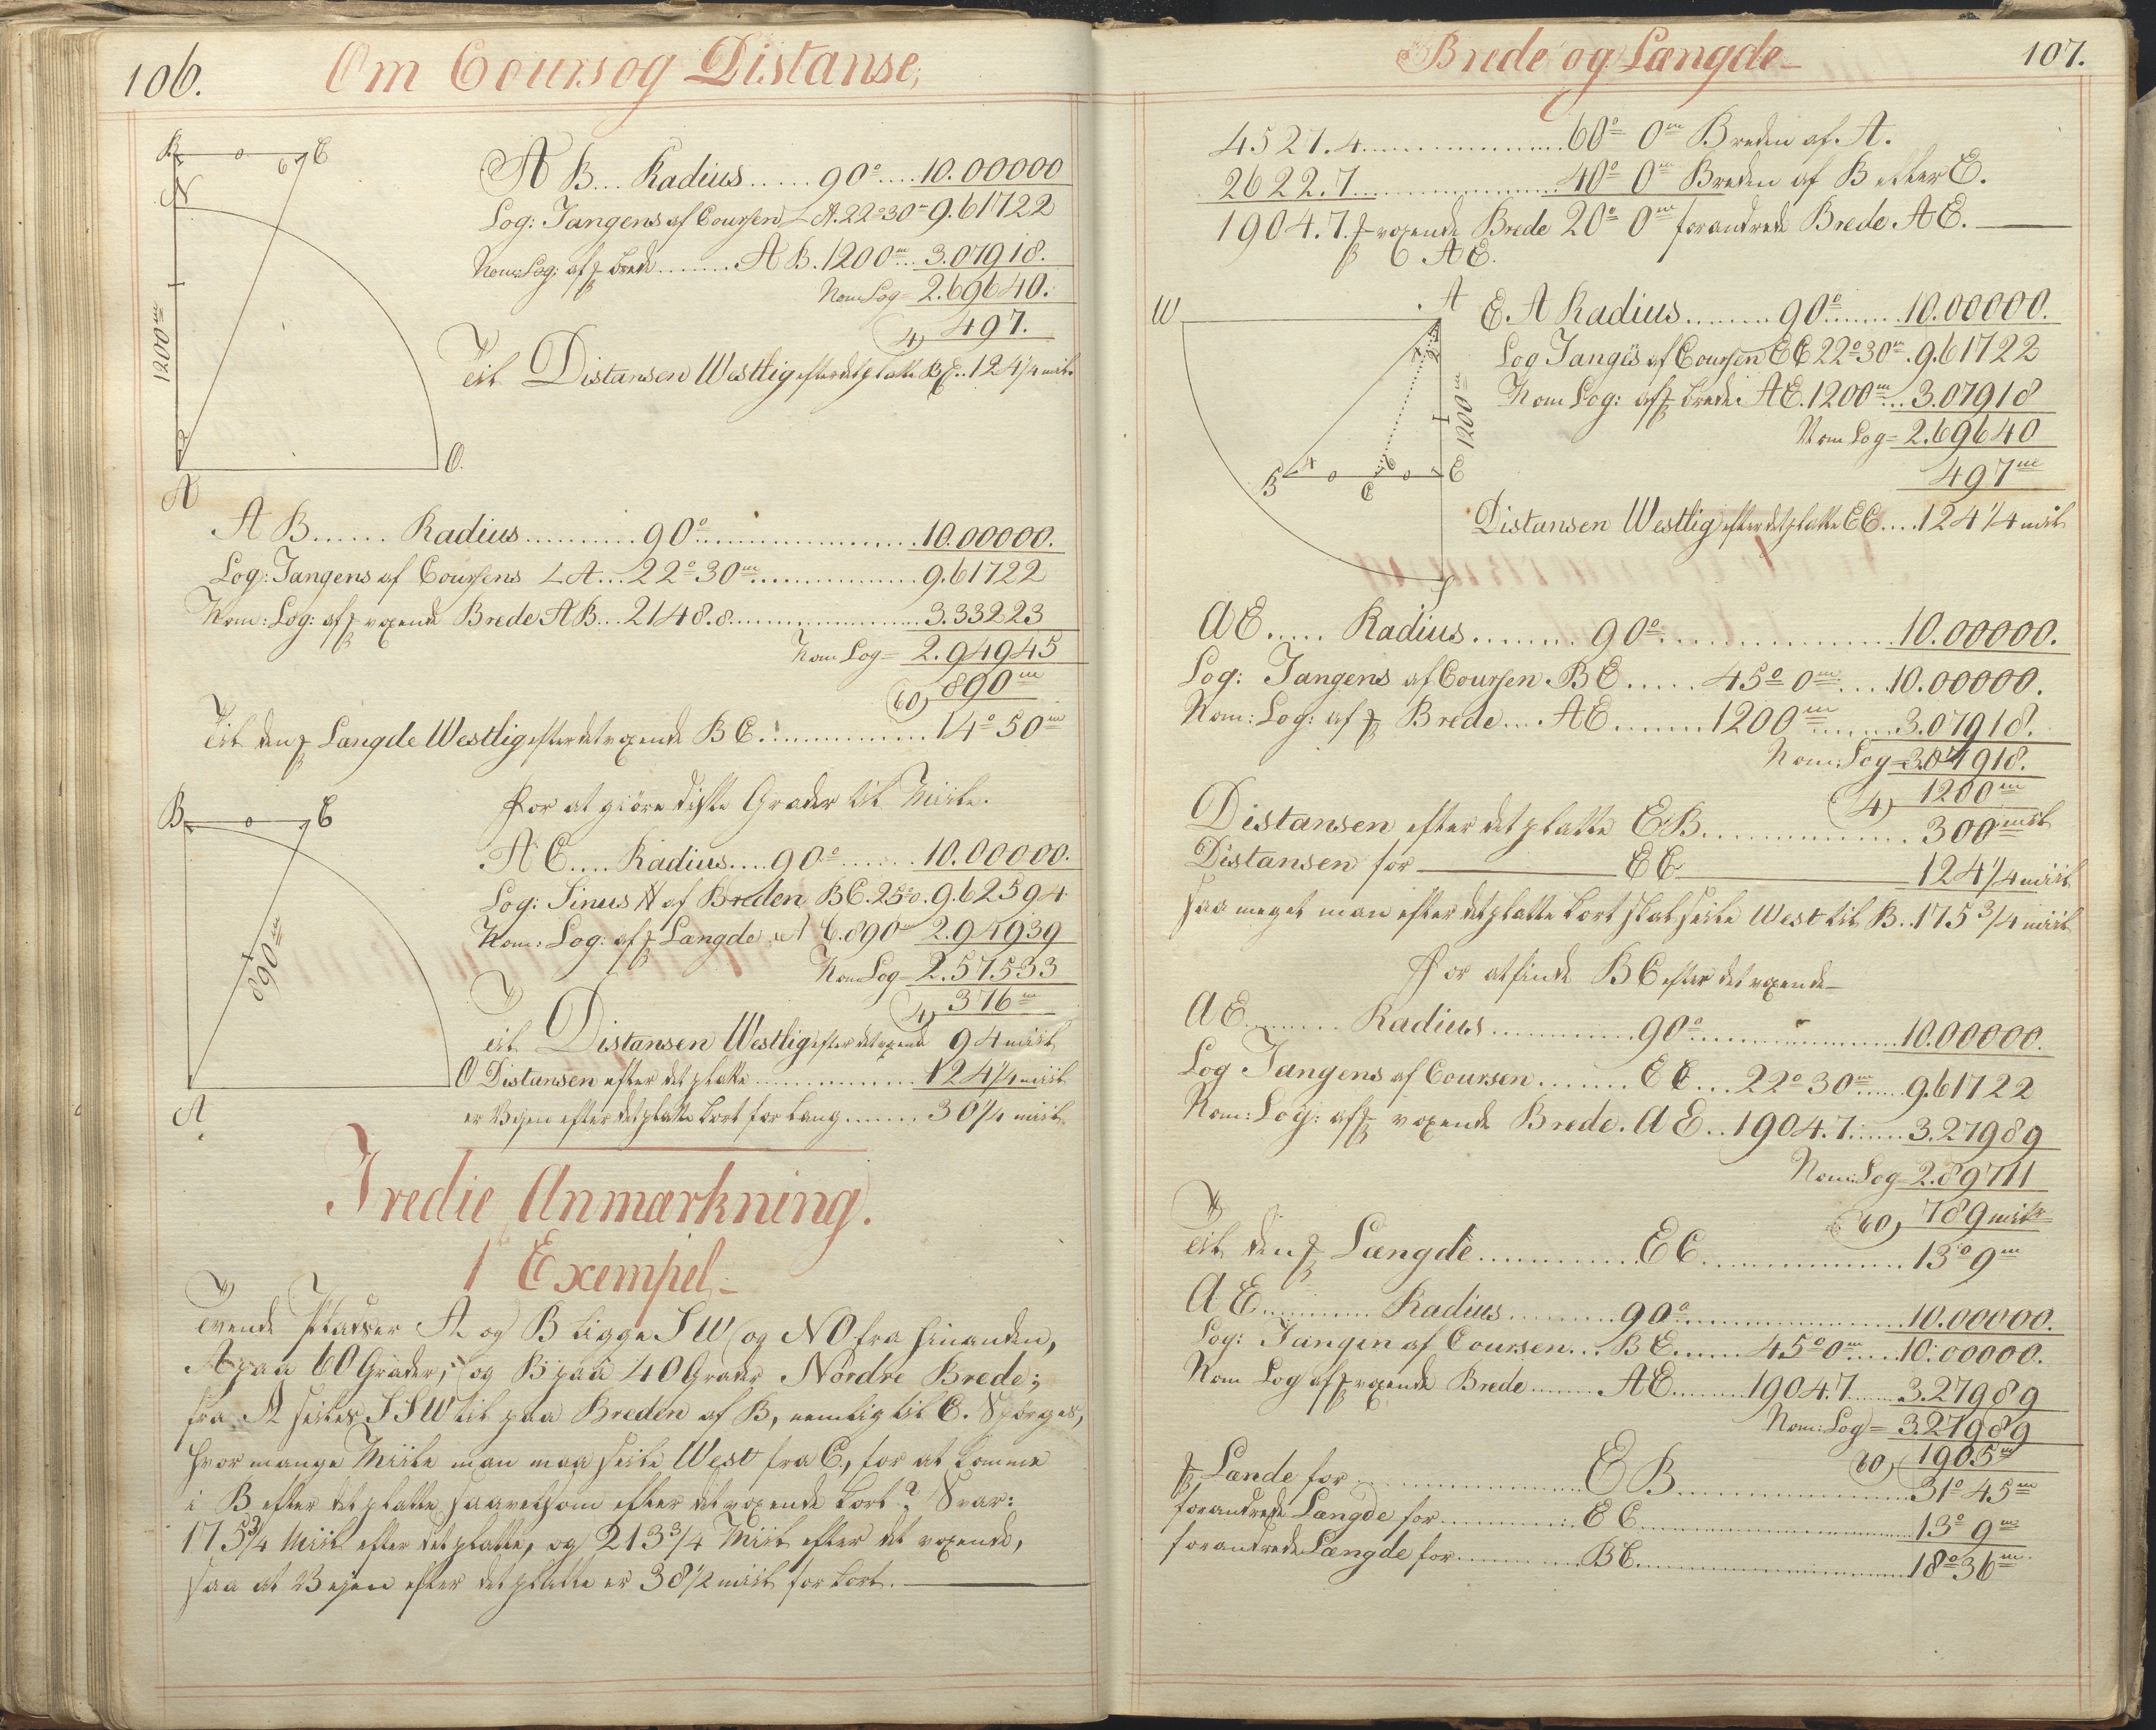 106.
Om Cours og Distanse,
B 0 6 C
N
1200m
A
O.
A B.... Radius......90°....10.00000
Log: Tangens af Coursen ∠ A. 22°30m 9.61722
Nom: Log: af f brede........A B. 1200m...3.07918.
Nom Log= 2.69640.
4) 497.
Til Distansen Westlig efter det platte BC..124 1/4 mil.
A B...... Radius..........90°....................10.00000.
Log: Tangens af Coursens ∠ A...22°30m...............9.61722
Nom: Log: af f voxende Brede A B...2148.8.................3.33223
Nom Log= 2.94945
60) 890m
Til den f Længde Westlig efter det voxende B C...............14°50m
B 0 C
890m
O
A
for at giöre diste Grader til Miile.
A C.... Radius....90°......10.00000.
Log: Sinus af Breden BC. 25°0. 9.62594
Nom: Log: af f Længde A C. 890m 2.94939
Nom Log= 2.57533
4) 376m
Til Distansen Westlig efter det voxend 94 miil
Distansen efter det platte...............124 1/4 miil
er Vejen efter det platte Kort for lang.......30 1/4 miil.
Tredie Anmærkning.
1 Exempel
Tvende Pladser A og B ligge SW og NO fra hinanden,
A paa 60 Grader, og B paa 40 Grader Nordre Brede;
fra A seiles SSW til paa Breden af B, nemlig til C. Spörges,
hvor mange Miile man maa seile West fra C, for at komme
i B efter det platte saavelsom efter det voxende Kort? Svar:
175 3/4 Miil efter det platte, og 213 3/4 Miil efter det voxende,
saa at Vejen efter det platte er 38 1/2 miil for kort.
Brede og Længde
107.
4521.4....................60° 0m Breden af A.
2622.7....................40° 0m Breden af B eller E.
1904.7. f voxende Brede 20° 0m forandrede Brede A E.
A E.
W A
1200m
B 4 0 C 0 E
S
E A Radius........90°.......10.00000.
Log Tangs af Coursen E C 22°30m. 9.61722
Nom Log: af f brede. A E. 1200m...3.07918
Nom Log= 2.69640
497m
Distansen Westlig efter det platte E C....124 1/4 miil
A E..... Radius.........90°....................10.00000.
Log: Tangens af Coursen B E.....45° 0m....10.00000.
Nom: Log: af f Brede....A E........1200m.......3.07918.
Nom: Log= 3.07918.
4) 1200m
Distansen efter det platte E B...............300 miil
Distansen for E C 124 1/4 miil
saa meget man efter det platte Kort skal seile West til B..175 3/4 miil
for at finde B C efter det voxende
A E......... Radius..............90°....................10.00000.
Log Tangens af Coursen........E C....22°30m.....9.61722
Nom: Log: af f voxende Brede. A E..1904.7......3.27989
Nom: Log= 2.89711
60) 789 miil
Til den f Længde..............E C....................13° 9m
A E............ Radius..........90°....................10.00000.
Log: Tangen af Coursen... B E......45° 0m.....10.00000.
Nom Log af f voxende Brede........A E.........1904.7......3.27989
Nom: Log= 3.27989
60) 1905m
f Lænde for....................E B....................31° 45m
forandrede Længde for..............E C....................13° 9m
forandrede Længde for.............B C....................18° 36m.